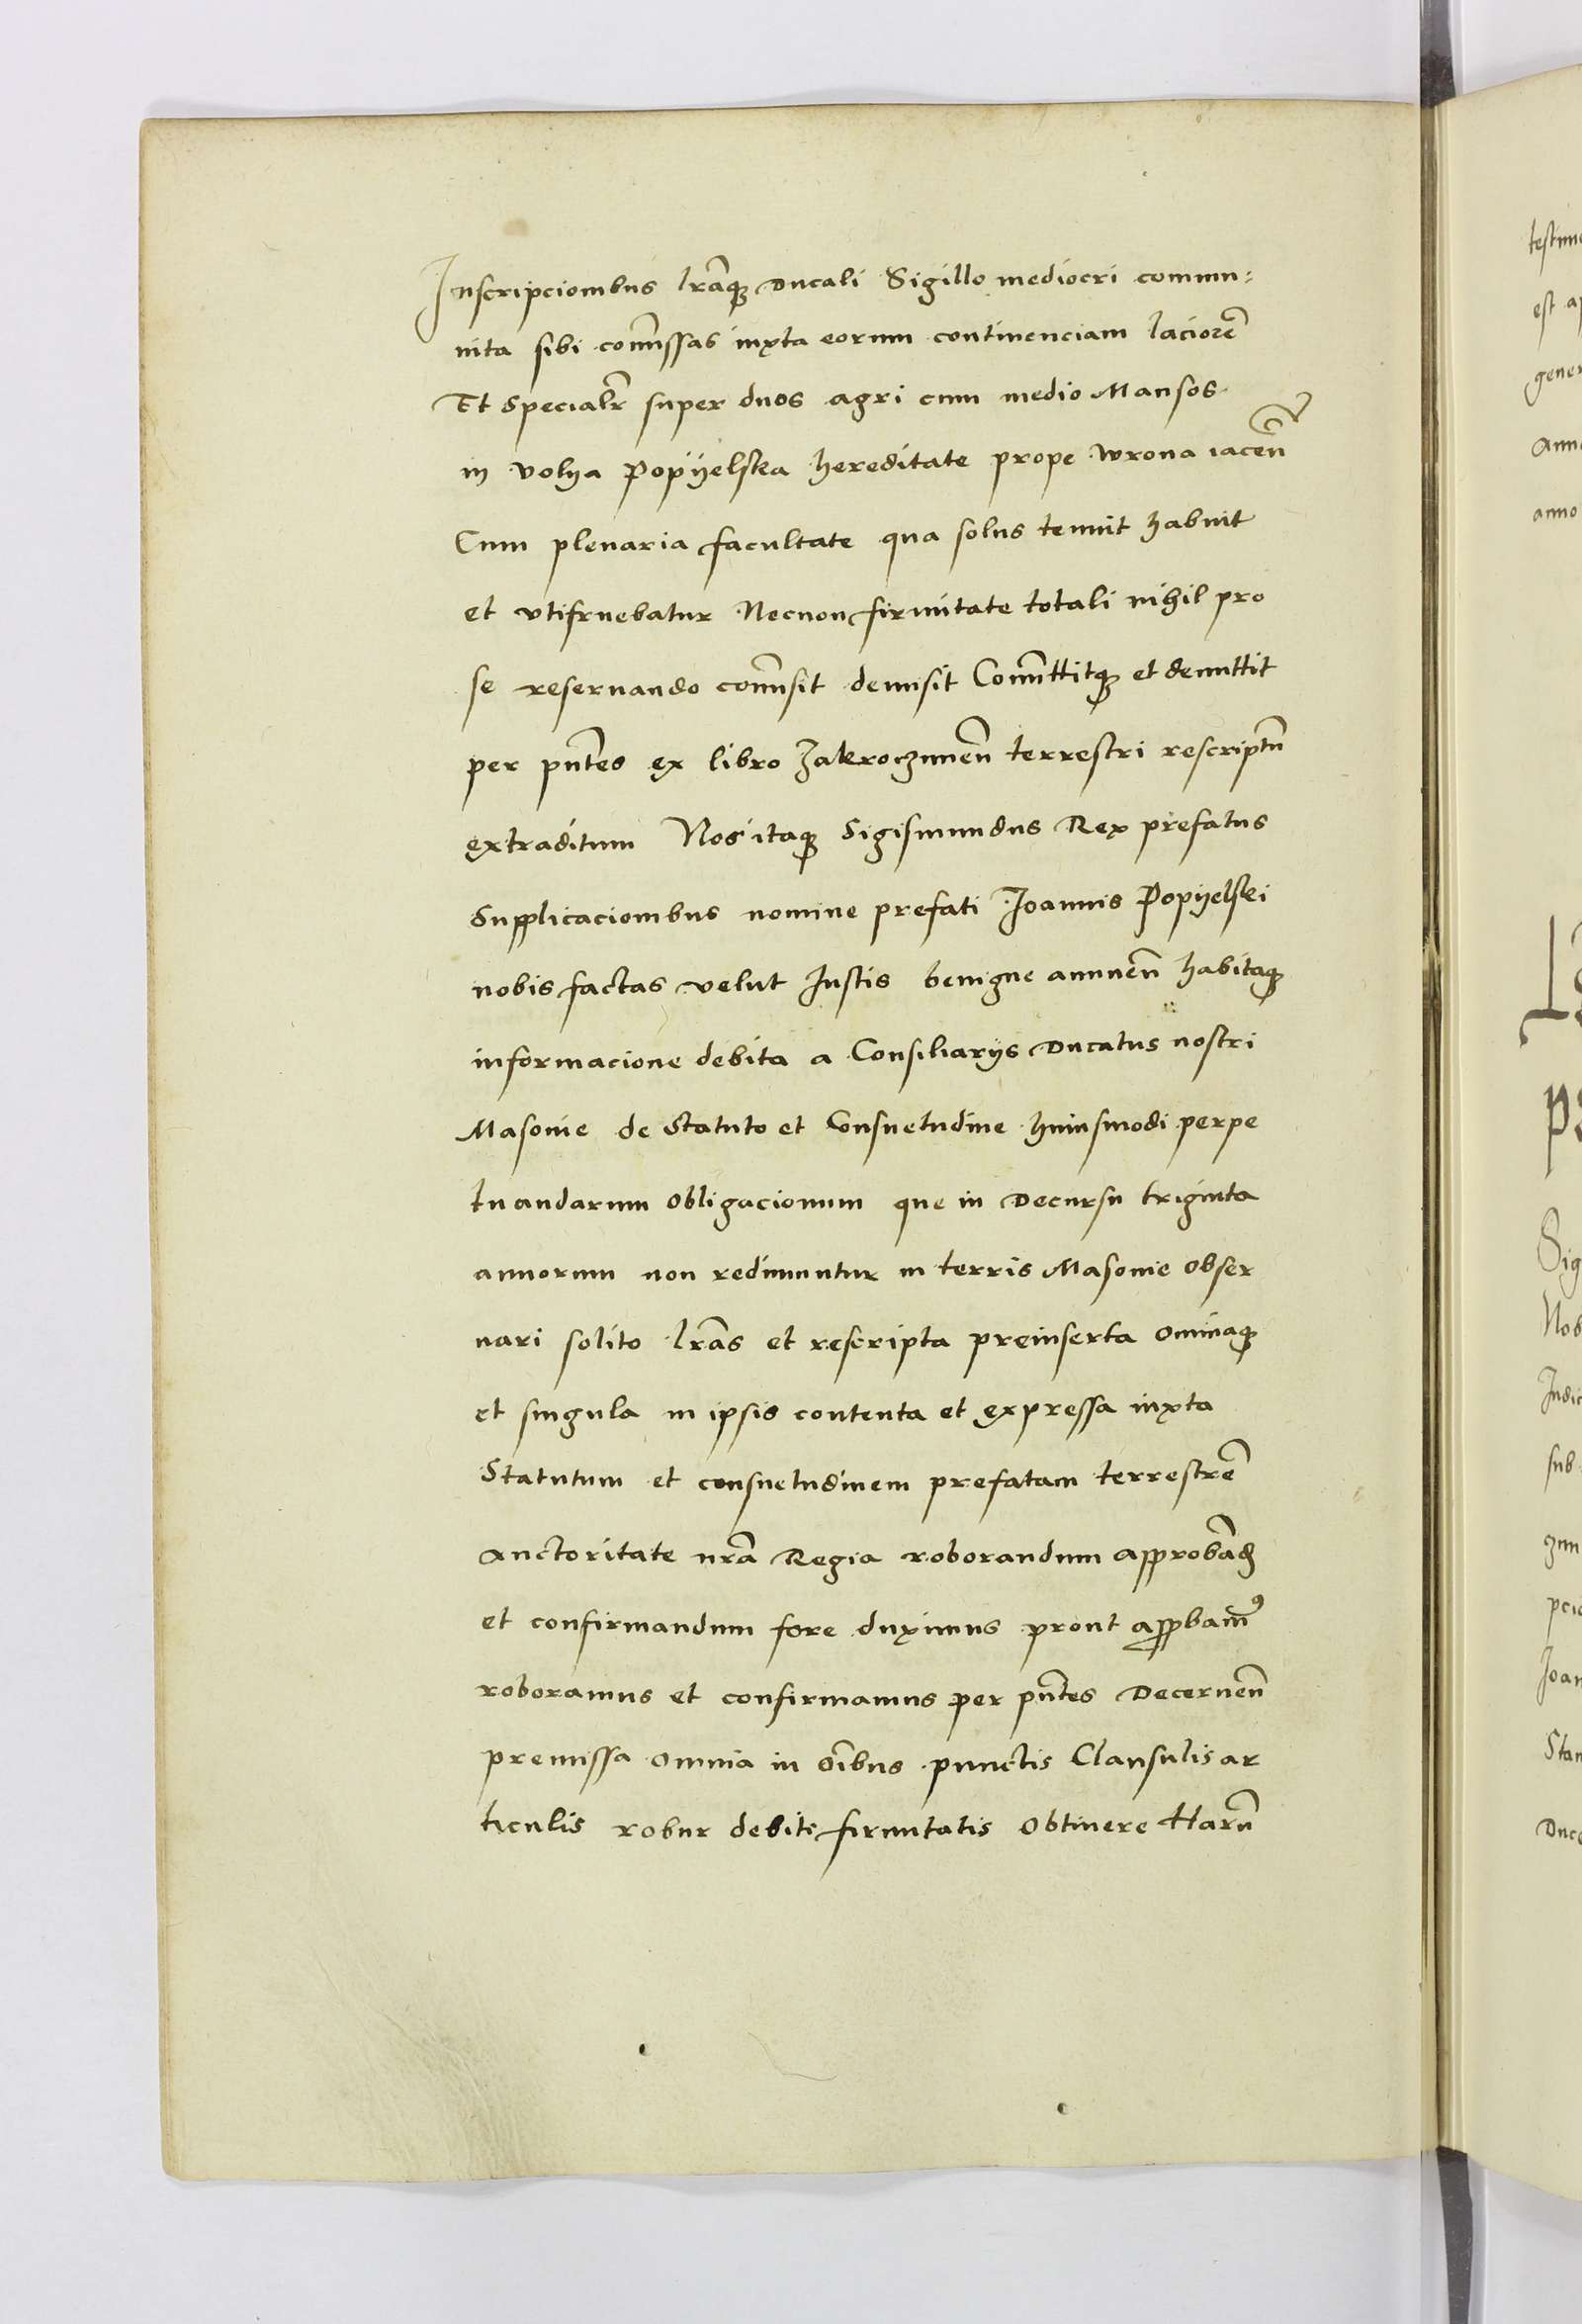 Inscripcionibus lrãq ducali Sigillo mediocri commu=
nita sibi com̃issas iuxta eorum continenciam laciorẽ
Et specialr̃ super duos agri cum medio Mansos
in volya Popyelska hereditate prope Wrona iaceñ
Cum plenaria facultate qua solus tenuit habuit
et vtifruebatur Necnon firmitate totali nihil pro
se reseruando com̃isit demisit Com̃ittitq et demittit
per pñtes ex libro Zakroczimeñ terrestri rescriptũ
extraditum Nos itaq Sigismundus Rex prefatus
Supplicacionibus nomine prefati Joannis Popyelski
nobis factas velut Iustis benigne annueñ habitaq
informacione debita a Consiliarys Ducatus nostri
Masouie de statuto et Consuetudine huiusmodi perpe
tuandarum obligacionum que in Decursu triginta
annorum non redimuntur in terris Masouie obser
uari solito lrãs et rescripta preinserta omniaq
et singula in ipsis contenta et expressa iuxta
Statutum et consuetudinem prefatam terrestrẽ
auctoritate nrã Regia roborandum approbãd
et confirmandum fore duximus prout appbam9
roboramus et confirmamus per pñtes Decerneñ
premissa omnia in oĩbus punctis Clausulis ar
ticulis robur debite firmitatis obtinere Harũ
testimo
est ap
gener
Anno
anno
Sig
Nos
Iudic
sub
zim
pcio
Joan
Stan
Duca